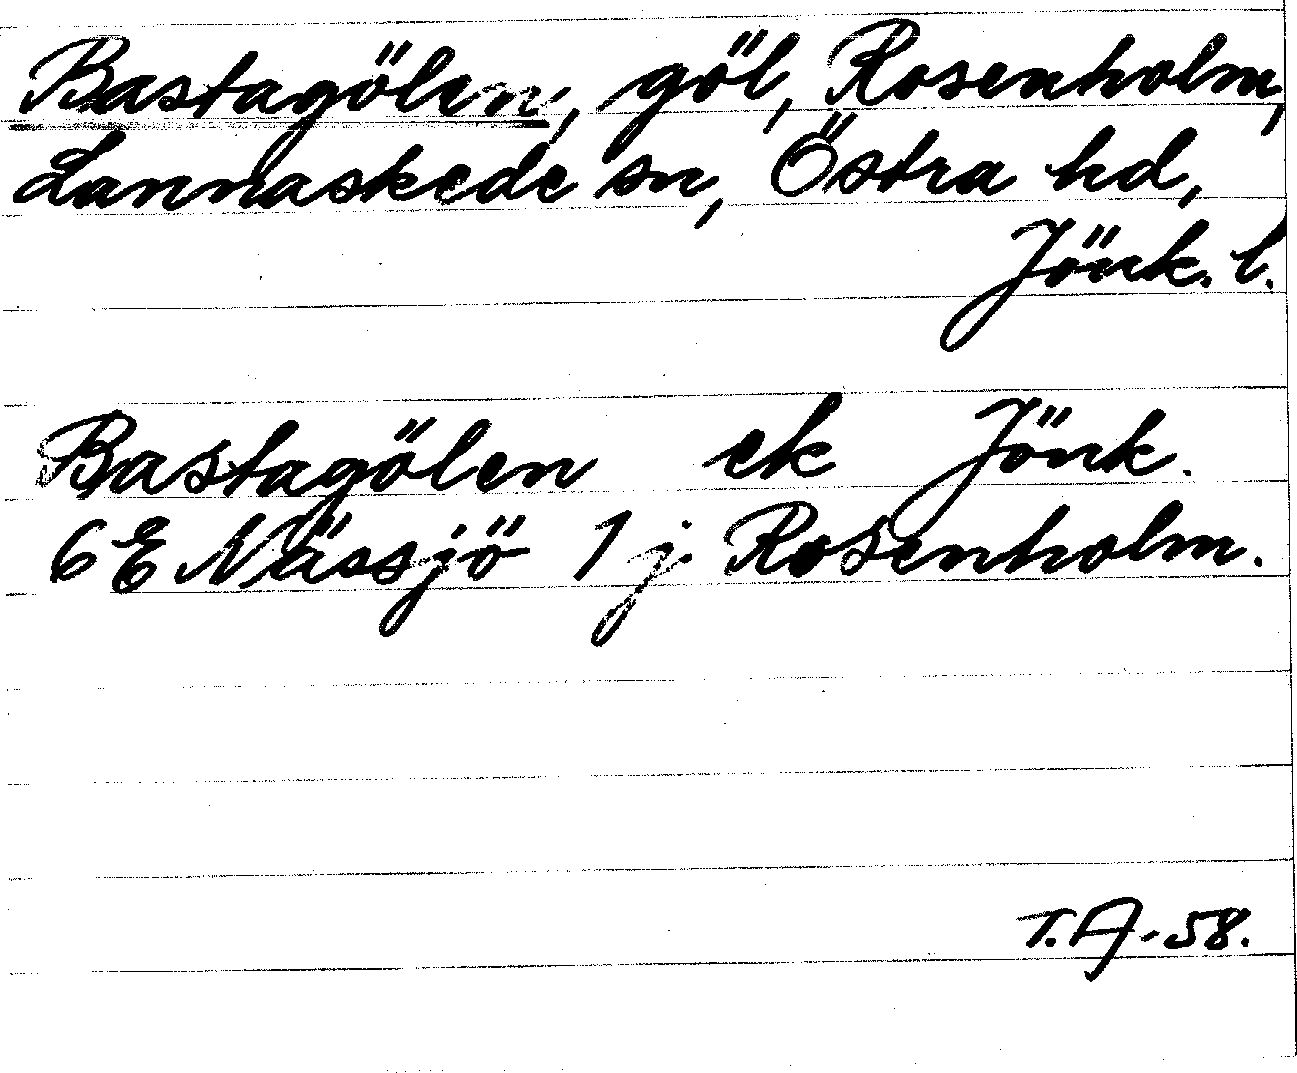 Bastagölen, göl, Rosenholm,
Lannaskede sn, Östra hd,
Jönk. l.
Bastagölen ek Jönk.
6E Nässjö 1j Rosenholm.
T.A-58.